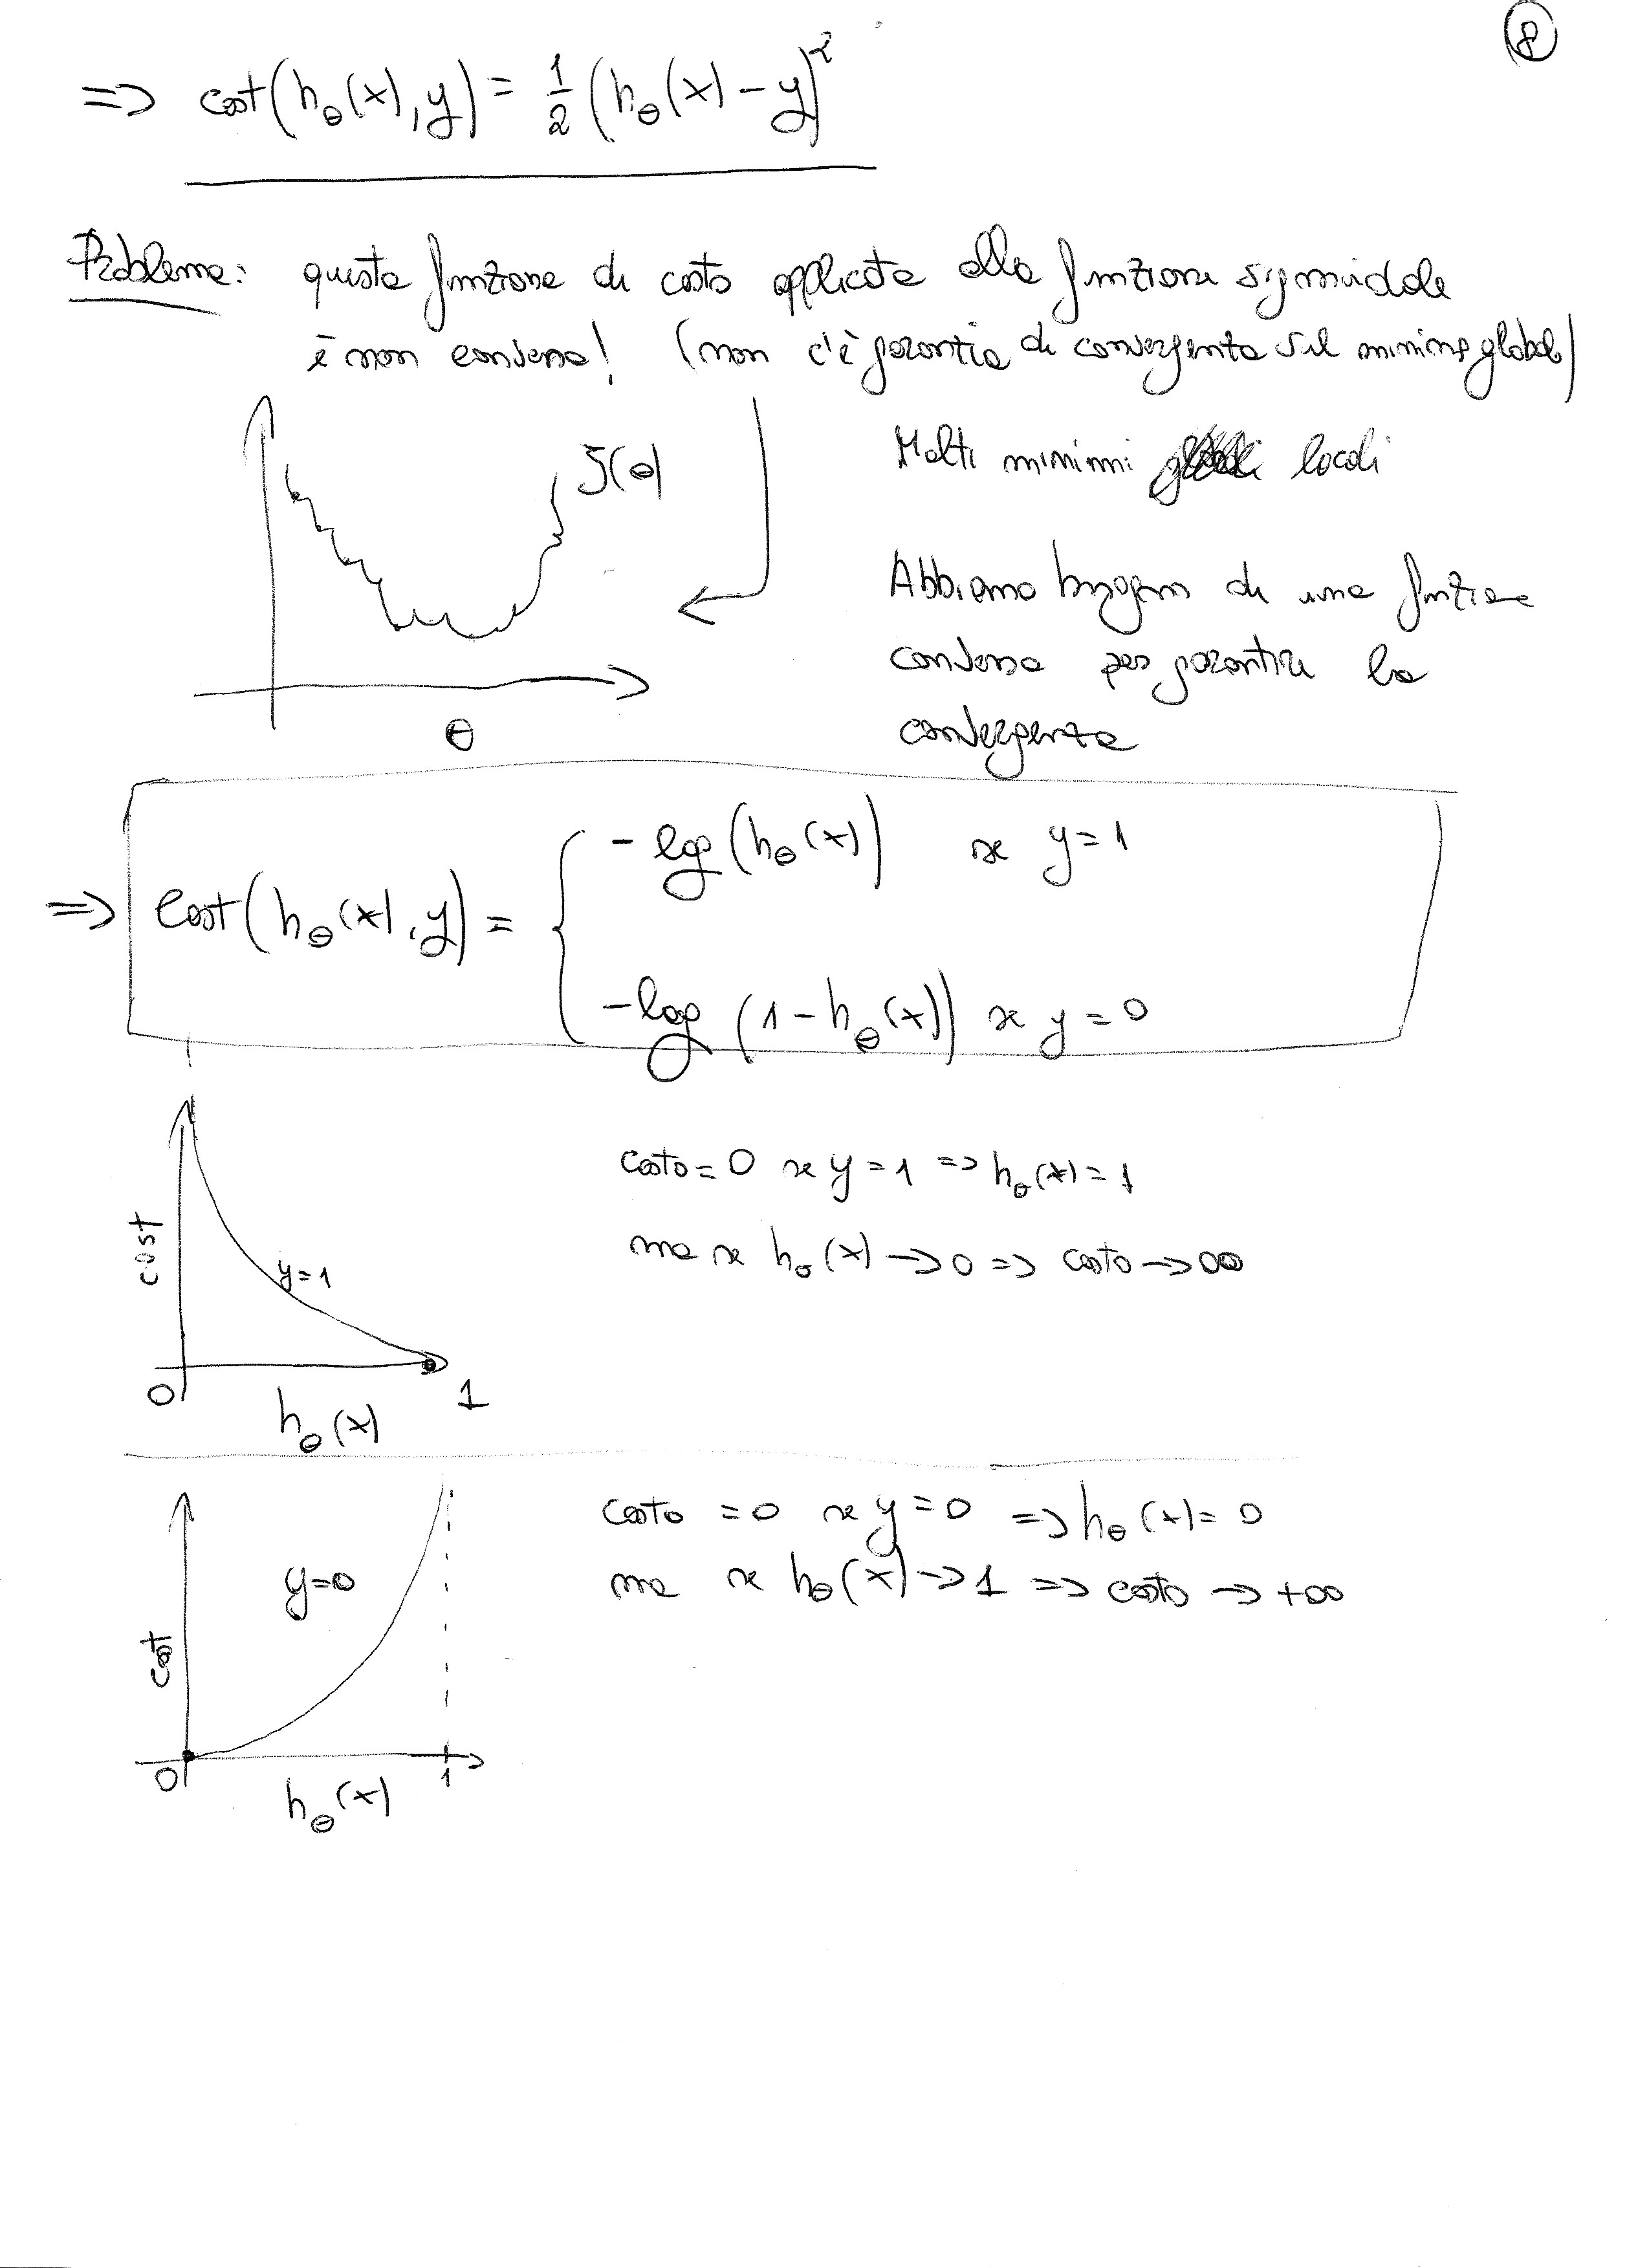 8
=> cost(hθ(x), y) = 1/2 (hθ(x) - y)²
Problema: questa funzione di costo applicata alla funzione sigmoidale
è non convessa! (non c'è garanzia di convergenza sul minimo globale)
J(θ)
Molti minimi locali
Abbiamo bisogno di una funzione
convessa per garantire la
convergenza
θ
=> Cost(hθ(x), y) = { -log(hθ(x)) se y = 1
-log(1 - hθ(x)) se y = 0
cost
y=1
0
hθ(x)
1
costo = 0 se y = 1 => hθ(x) = 1
ma se hθ(x) -> 0 => costo -> ∞
cost
y=0
0
hθ(x)
1
costo = 0 se y = 0 => hθ(x) = 0
ma se hθ(x) -> 1 => costo -> +∞